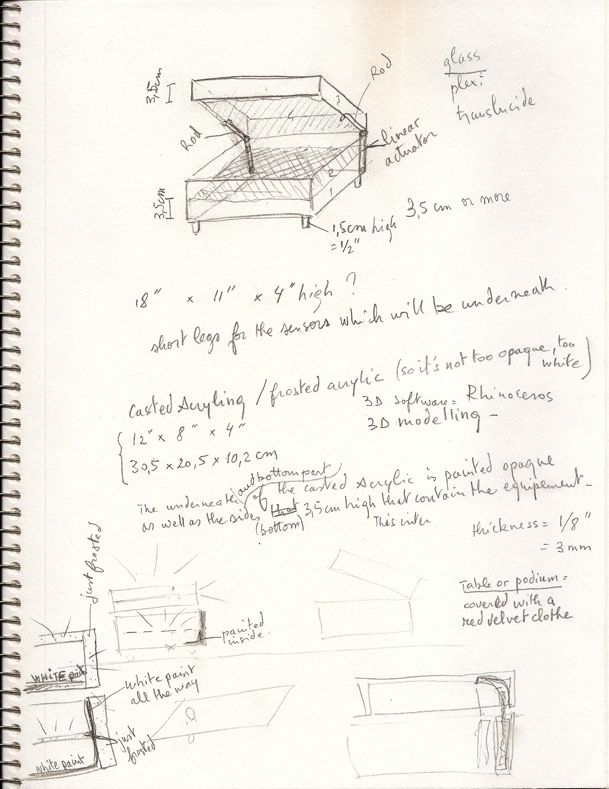 glass
plex?
translucide
3,5cm
Rod
Rod
linear
actuator
3
2
1
3,5cm
1,5cm high
= 1/2"
3,5 cm or more
18" x 11" x 4" high ?
short legs for the sensors which will be underneath.
Casted Acryling / frosted acrylic (so it's not too opaque, too white)
12" x 8" x 4"
30,5 x 20,5 x 10,2 cm
3D software = Rhinoceros
3D modelling -
The underneath and bottom part of the casted Acrylic is painted opaque
as well as the sides (bottom) that 3,5cm high that contain the equipement -
This inter
thickness = 1/8"
= 3mm
Table or podium =
covered with a
red velvet clothe
just frosted
painted
inside.
WHITE paint
white paint
all the way
just
frosted
white paint